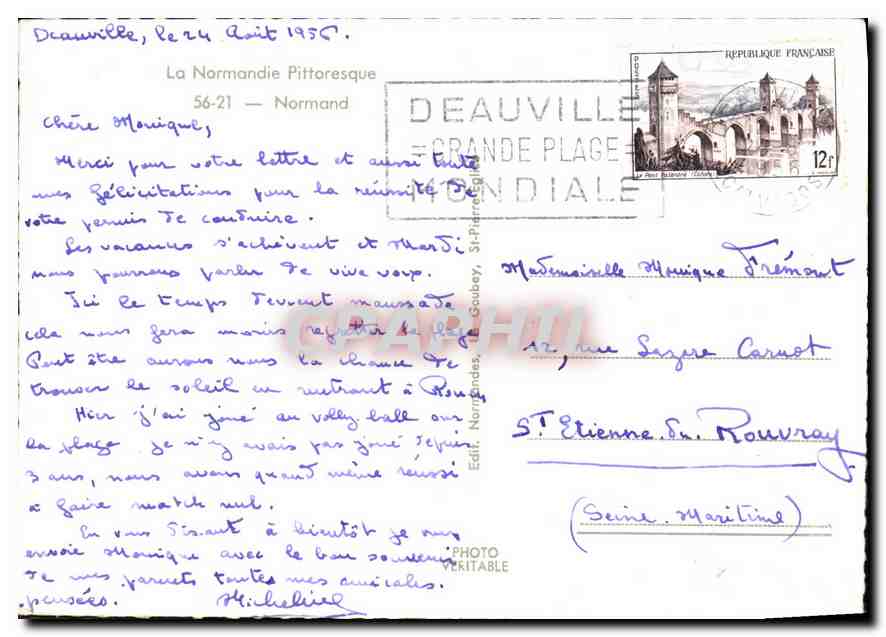 Deauville, le 24 Août 1956.
La Normandie Pittoresque
56-21 — Normand
Chère Monique,
Merci pour votre lettre et aussi toute
mes félicitations pour la réussite de
votre permis de conduire.
Les vacances s'achèvent et Mardi
nous pourrons parler de vive voix.
Ici le temps devient maussade
cela nous fera moins regretter la plage
Peut être aurons nous la chance de
trouver le soleil en rentrant à Rouen
Hier j'ai joué au volley-ball sur
la plage je n'y avais pas joué depuis
3 ans, nous avons quand même réussi
à faire match nul.
En vous disant à bientôt je vous
envoie Monique avec le bon souvenir
de mes parents toutes mes amicales
pensées.
Edit. Normandes, Le Goubey, St-Pierre-Eglise
PHOTO
VÉRITABLE
DEAUVILLE
GRANDE PLAGE
MONDIALE
REPUBLIQUE FRANÇAISE
POSTES
12f
Le Pont Valentré (Cahors)
Mademoiselle Monique Frémont
12, rue Lazare Carnot
St Etienne du Rouvray
(Seine Maritime)
CPAPHIL